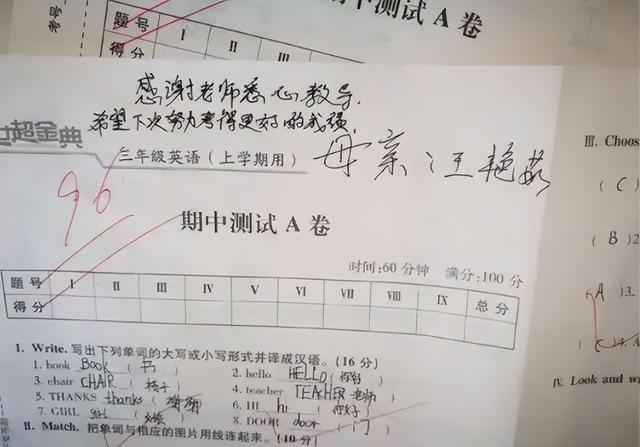 考号
期中测试 A 卷
题号 I II III
得分
感谢老师悉心教导,
希望下次努力考得更好的成绩,
母亲汪艳茹
超金典
三年级英语(上学期用)
96
期中测试 A 卷
时间:60分钟 满分:100分
题号 I II III IV V VI VII VIII IX 总分
得分
I. Write. 写出下列单词的大写或小写形式并译成汉语。(16分)
1. book BOOK ( 书 ) 2. hello HELLO ( 你好 )
3. chair CHAIR ( 椅子 ) 4. teacher TEACHER ( 老师 )
5. THANKS thanks ( 谢谢 ) 6. HI hi ( )
7. GIRL girl ( 女孩 ) 8. DOOR door ( 门 )
II. Match. 把单词与相应的图片用线连起来。(10分)
III. Choos
( C )
( B )2
( A )3.
IV. Look and w